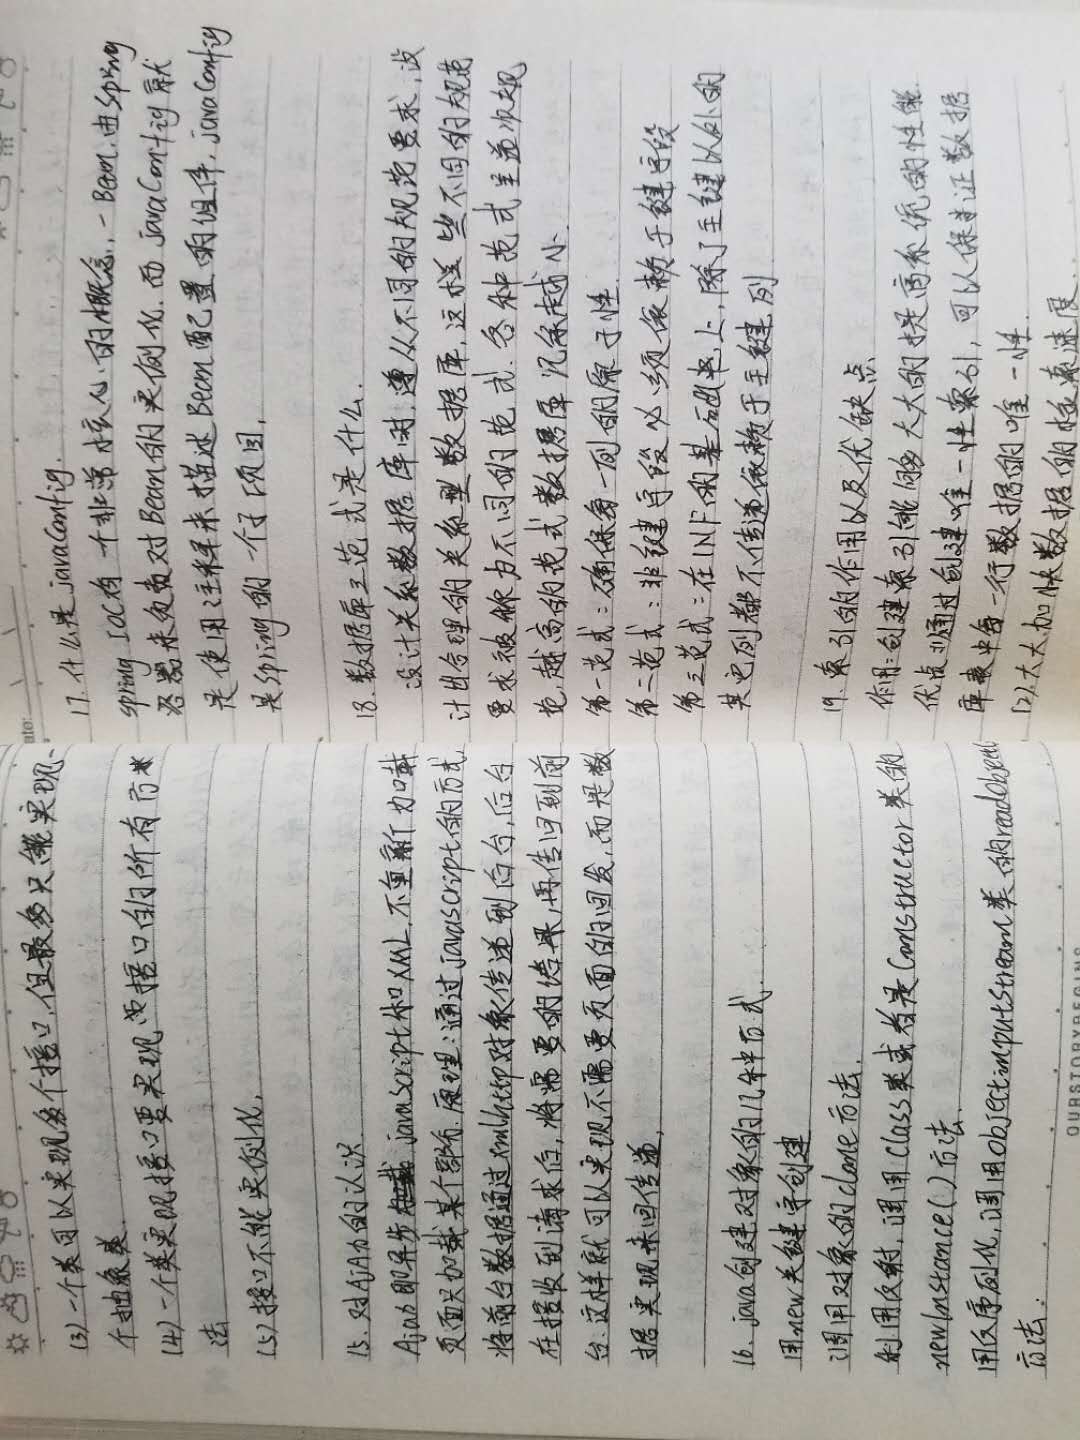 (3)一个类可以实现多个接口,但最多只能实现一
个抽象类.
(4)一个类实现接口要实现该接口的所有方
法
(5)接口不能实例化.
15.对AJAX的认识
Ajax即异步javaScript和XML,不重新加载
页面只加载某个部分.原理:通过javascript的方式
将前台数据通过xmlhttp对象传递到后台,后台
在接收到请求后,将需要的结果,再传回到前
台.这样就可以实现不需要页面的回发,而是数
据实现来回传递.
16.java创建对象的几种方式.
用new关键字创建
调用对象的clone方法.
利用反射,调用Class类或者是Constructor类的
newInstance()方法.
用反序列化,调用ObjectinputStream类的readObject
方法.
OURSTORYBEGINS
ate:
17.什么是javaConfig.
Spring IOC有一个非常核心的概念,一Bean.由Spring
容器来负责对Bean的实例化.而javaConfig就
是使用注释来描述Bean配置的组件,javaConfig
是Spring的一个子项目.
18.数据库三范式是什么.
设计关系数据库时,遵从不同的规范要求,设
计出合理的关系型数据库,这些不同的规范
要求被称为不同的范式.各种范式呈递次规
范,越高的范式数据库冗余越小.
第一范式:确保每一列的原子性.
第二范式:非键字段必须依赖于键字段
第三范式:在1NF的基础上,除了主键以外的
其它列都不传递依赖于主键列
19.索引的作用以及优缺点.
作用:创建索引能够大大的提高系统的性能.
优点:(1)通过创建唯一性索引,可以保证数据
库表中每一行数据的唯一性.
(2)大大加快数据的检索速度.